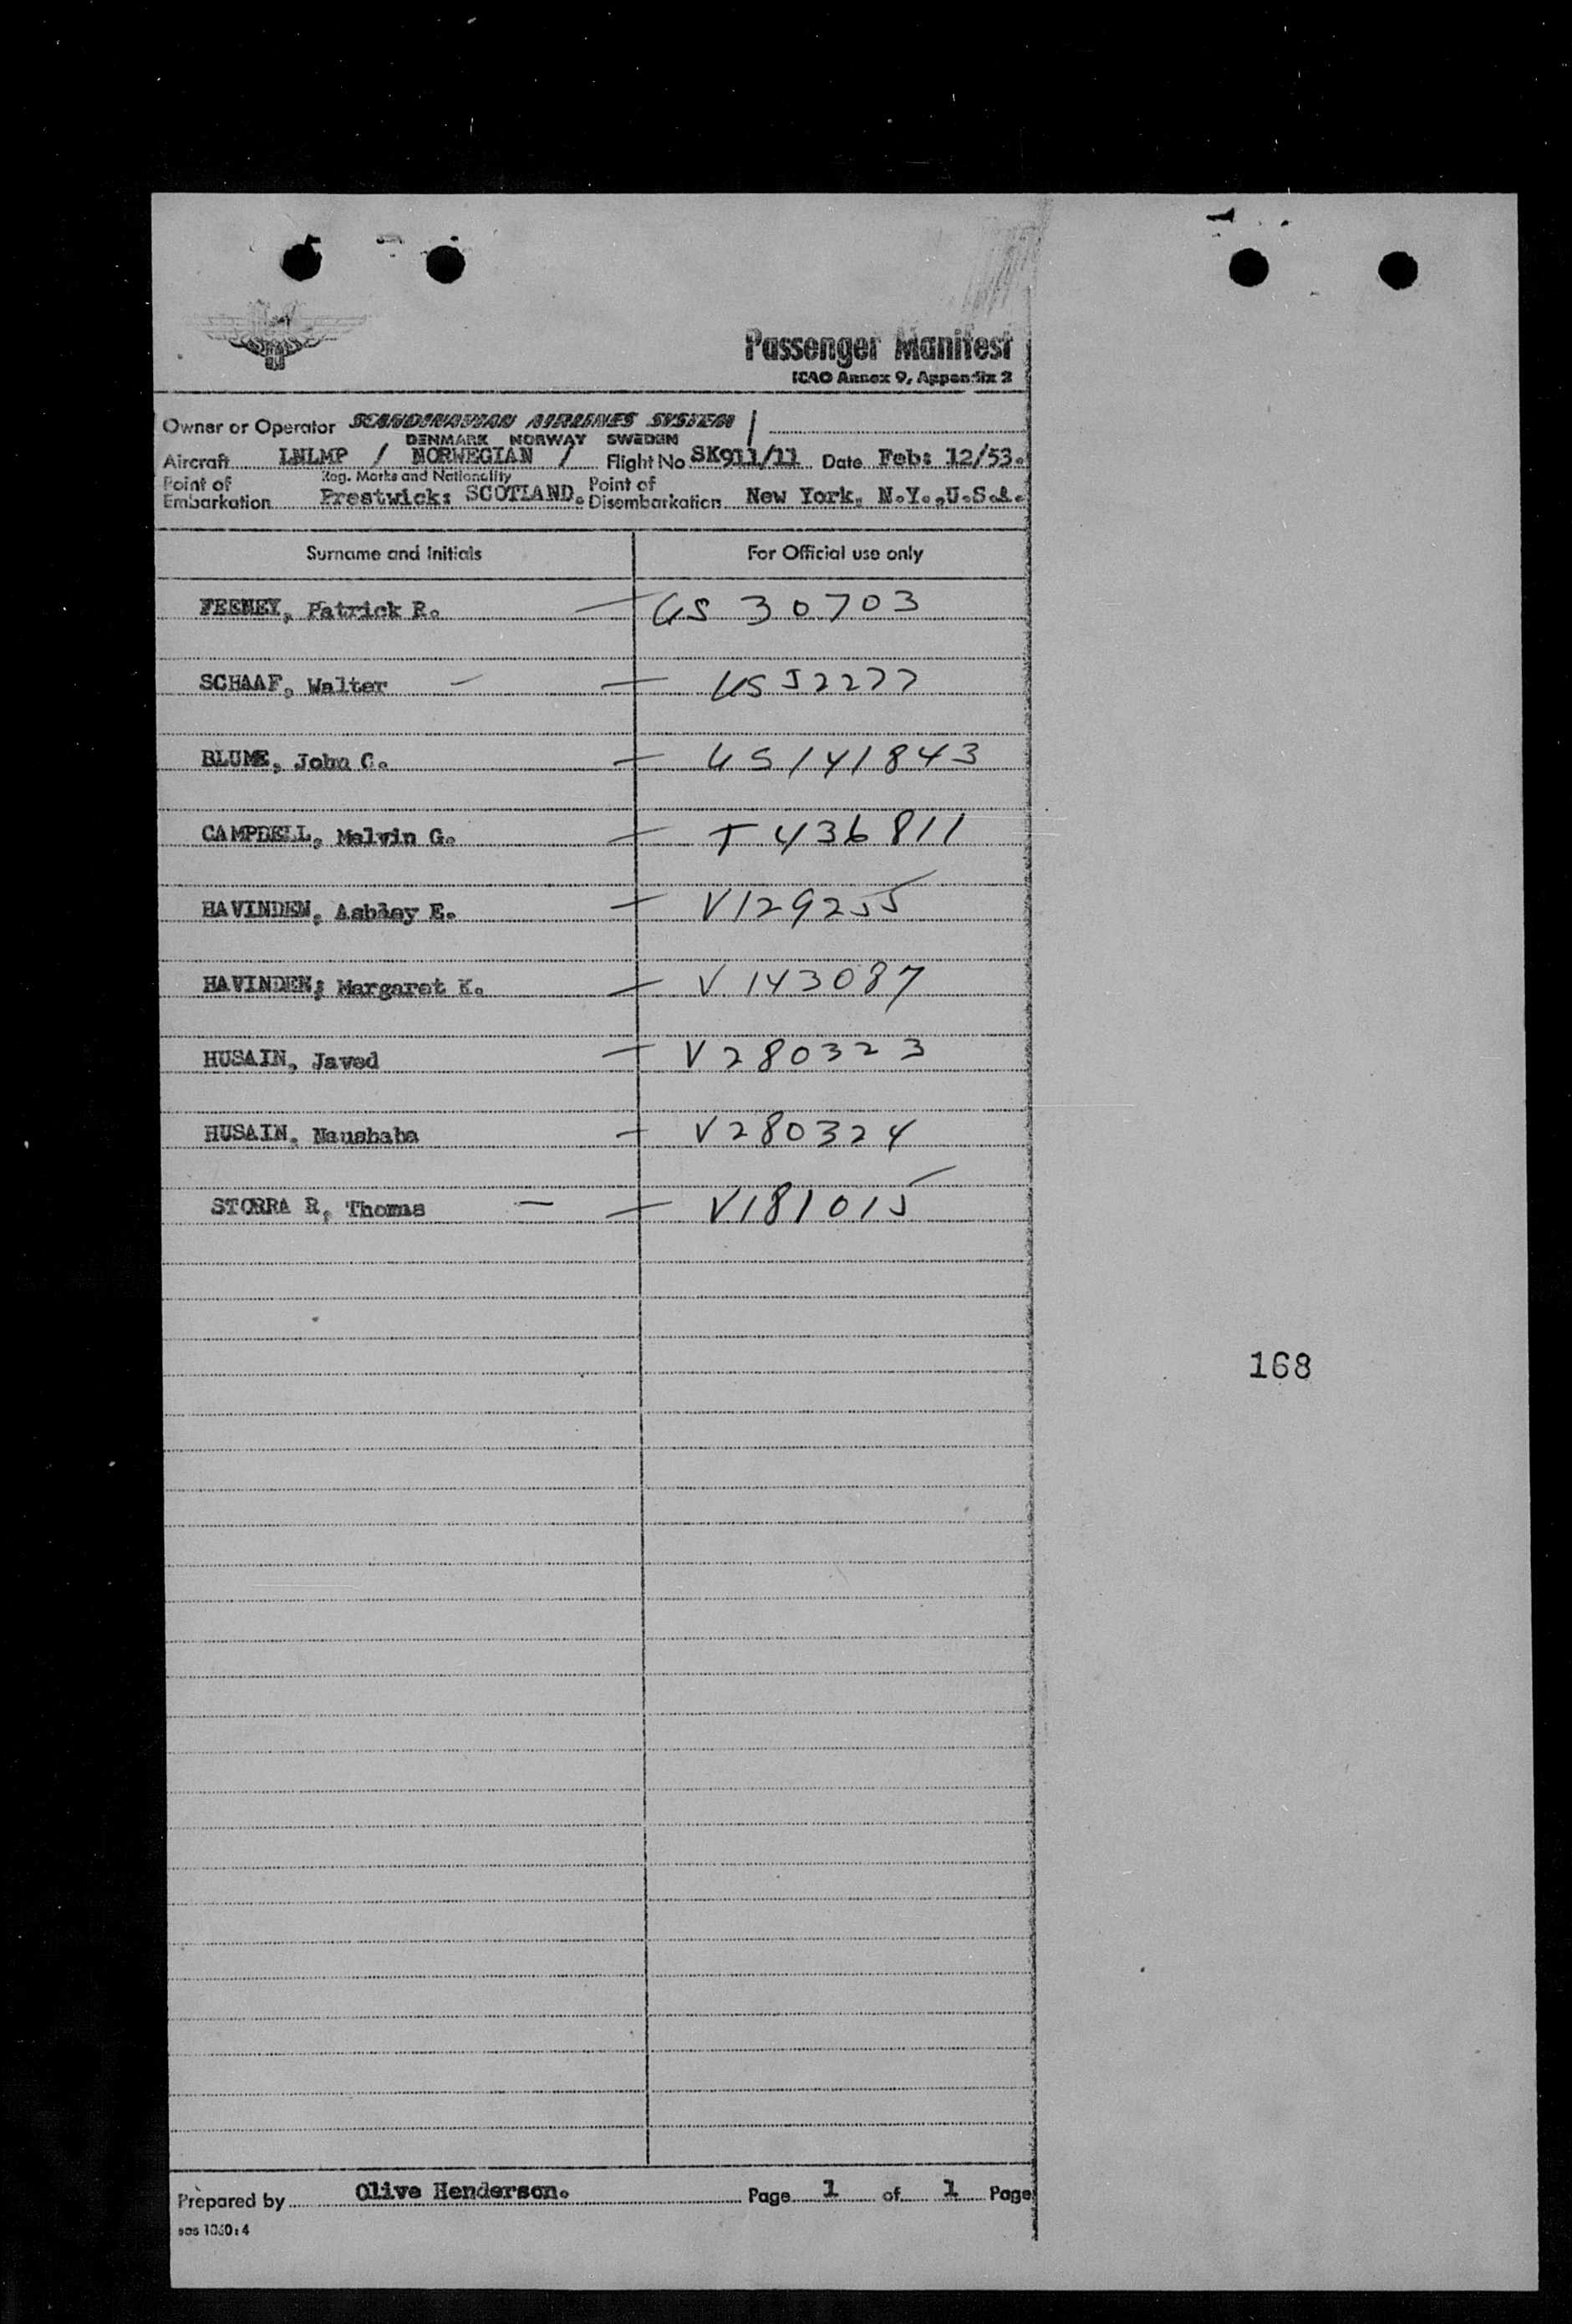 Passenger Manifest
ICAO Annex 9, Appendix 2
Owner or Operator SCANDINAVIAN AIRLINES SYSTEM /
DENMARK NORWAY SWEDEN
Aircraft LNLMP / NORWEGIAN / Flight No SK911/11 Date Feb: 12/53.
Reg. Marks and Nationality
Point of Embarkation Prestwick: SCOTLAND. Point of Disembarkation New York, N.Y.,U.S.A.
Surname and Initials For Official use only
FEENEY, Patrick R. — US 30703
SCHAAF, Walter — — US 52277
BLUME, John C. — US 141843
CAMPDELL, Melvin G. — T 436811
HAVINDEN, Ashley E. — V129255
HAVINDEN; Margaret K. — V 143087
HUSAIN, Javed — V 280323
HUSAIN, Naushaba — V280324
STORRA R, Thomas — — V181015
168
Prepared by Olive Henderson. Page 1 of 1 Page
sas 1060:4